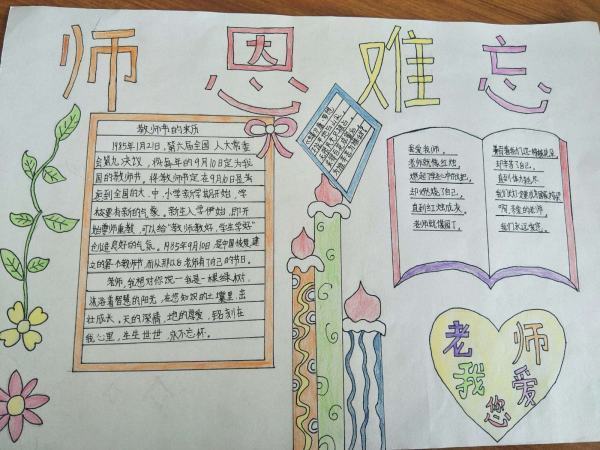 师恩难忘
教师节的来历
1985年1月21日，第六届全国人大常委
会第九次议，将每年的9月10日定为我
国的教师节，将教师节定在9月10日是考
虑到全国的大、中、小学新学期开始，学
校要有新的气象。新生入学伊始，即开
始尊师重教，可以给"教师教好，学生学好"
创造良好的气氛。1985年9月10日，是中国恢复建
立的第一个教师节，而从那以后老师有了自己的节日。
老师，我想对你说一我是一棵绿树，
沐浴着智慧的阳光，在您知识的土壤里，茁
壮成长。天的深情，地的恩爱，铭刻在
我心里，生生世世，永不忘怀。
我爱老师，
老师就像红烛，
燃起了
却燃烧了自己，
直到红烛成灰。
老师就像园丁，
却辛苦了自己，
我们永远爱您。
老师
我爱
您